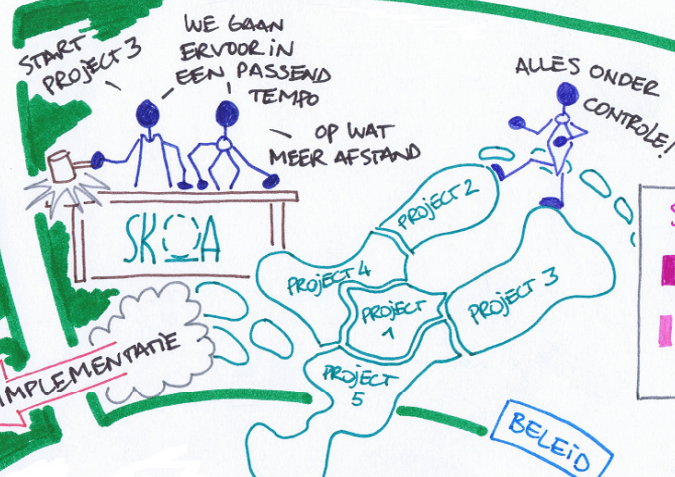 START
PROJECT 3
WE GAAN
ERVOOR IN
EEN PASSEND
TEMPO
OP WAT
MEER AFSTAND
ALLES ONDER
CONTROLE!
SKOA
PROJECT 2
PROJECT 4
PROJECT 3
PROJECT
1
IMPLEMENTATIE
PROJECT
5
BELEID